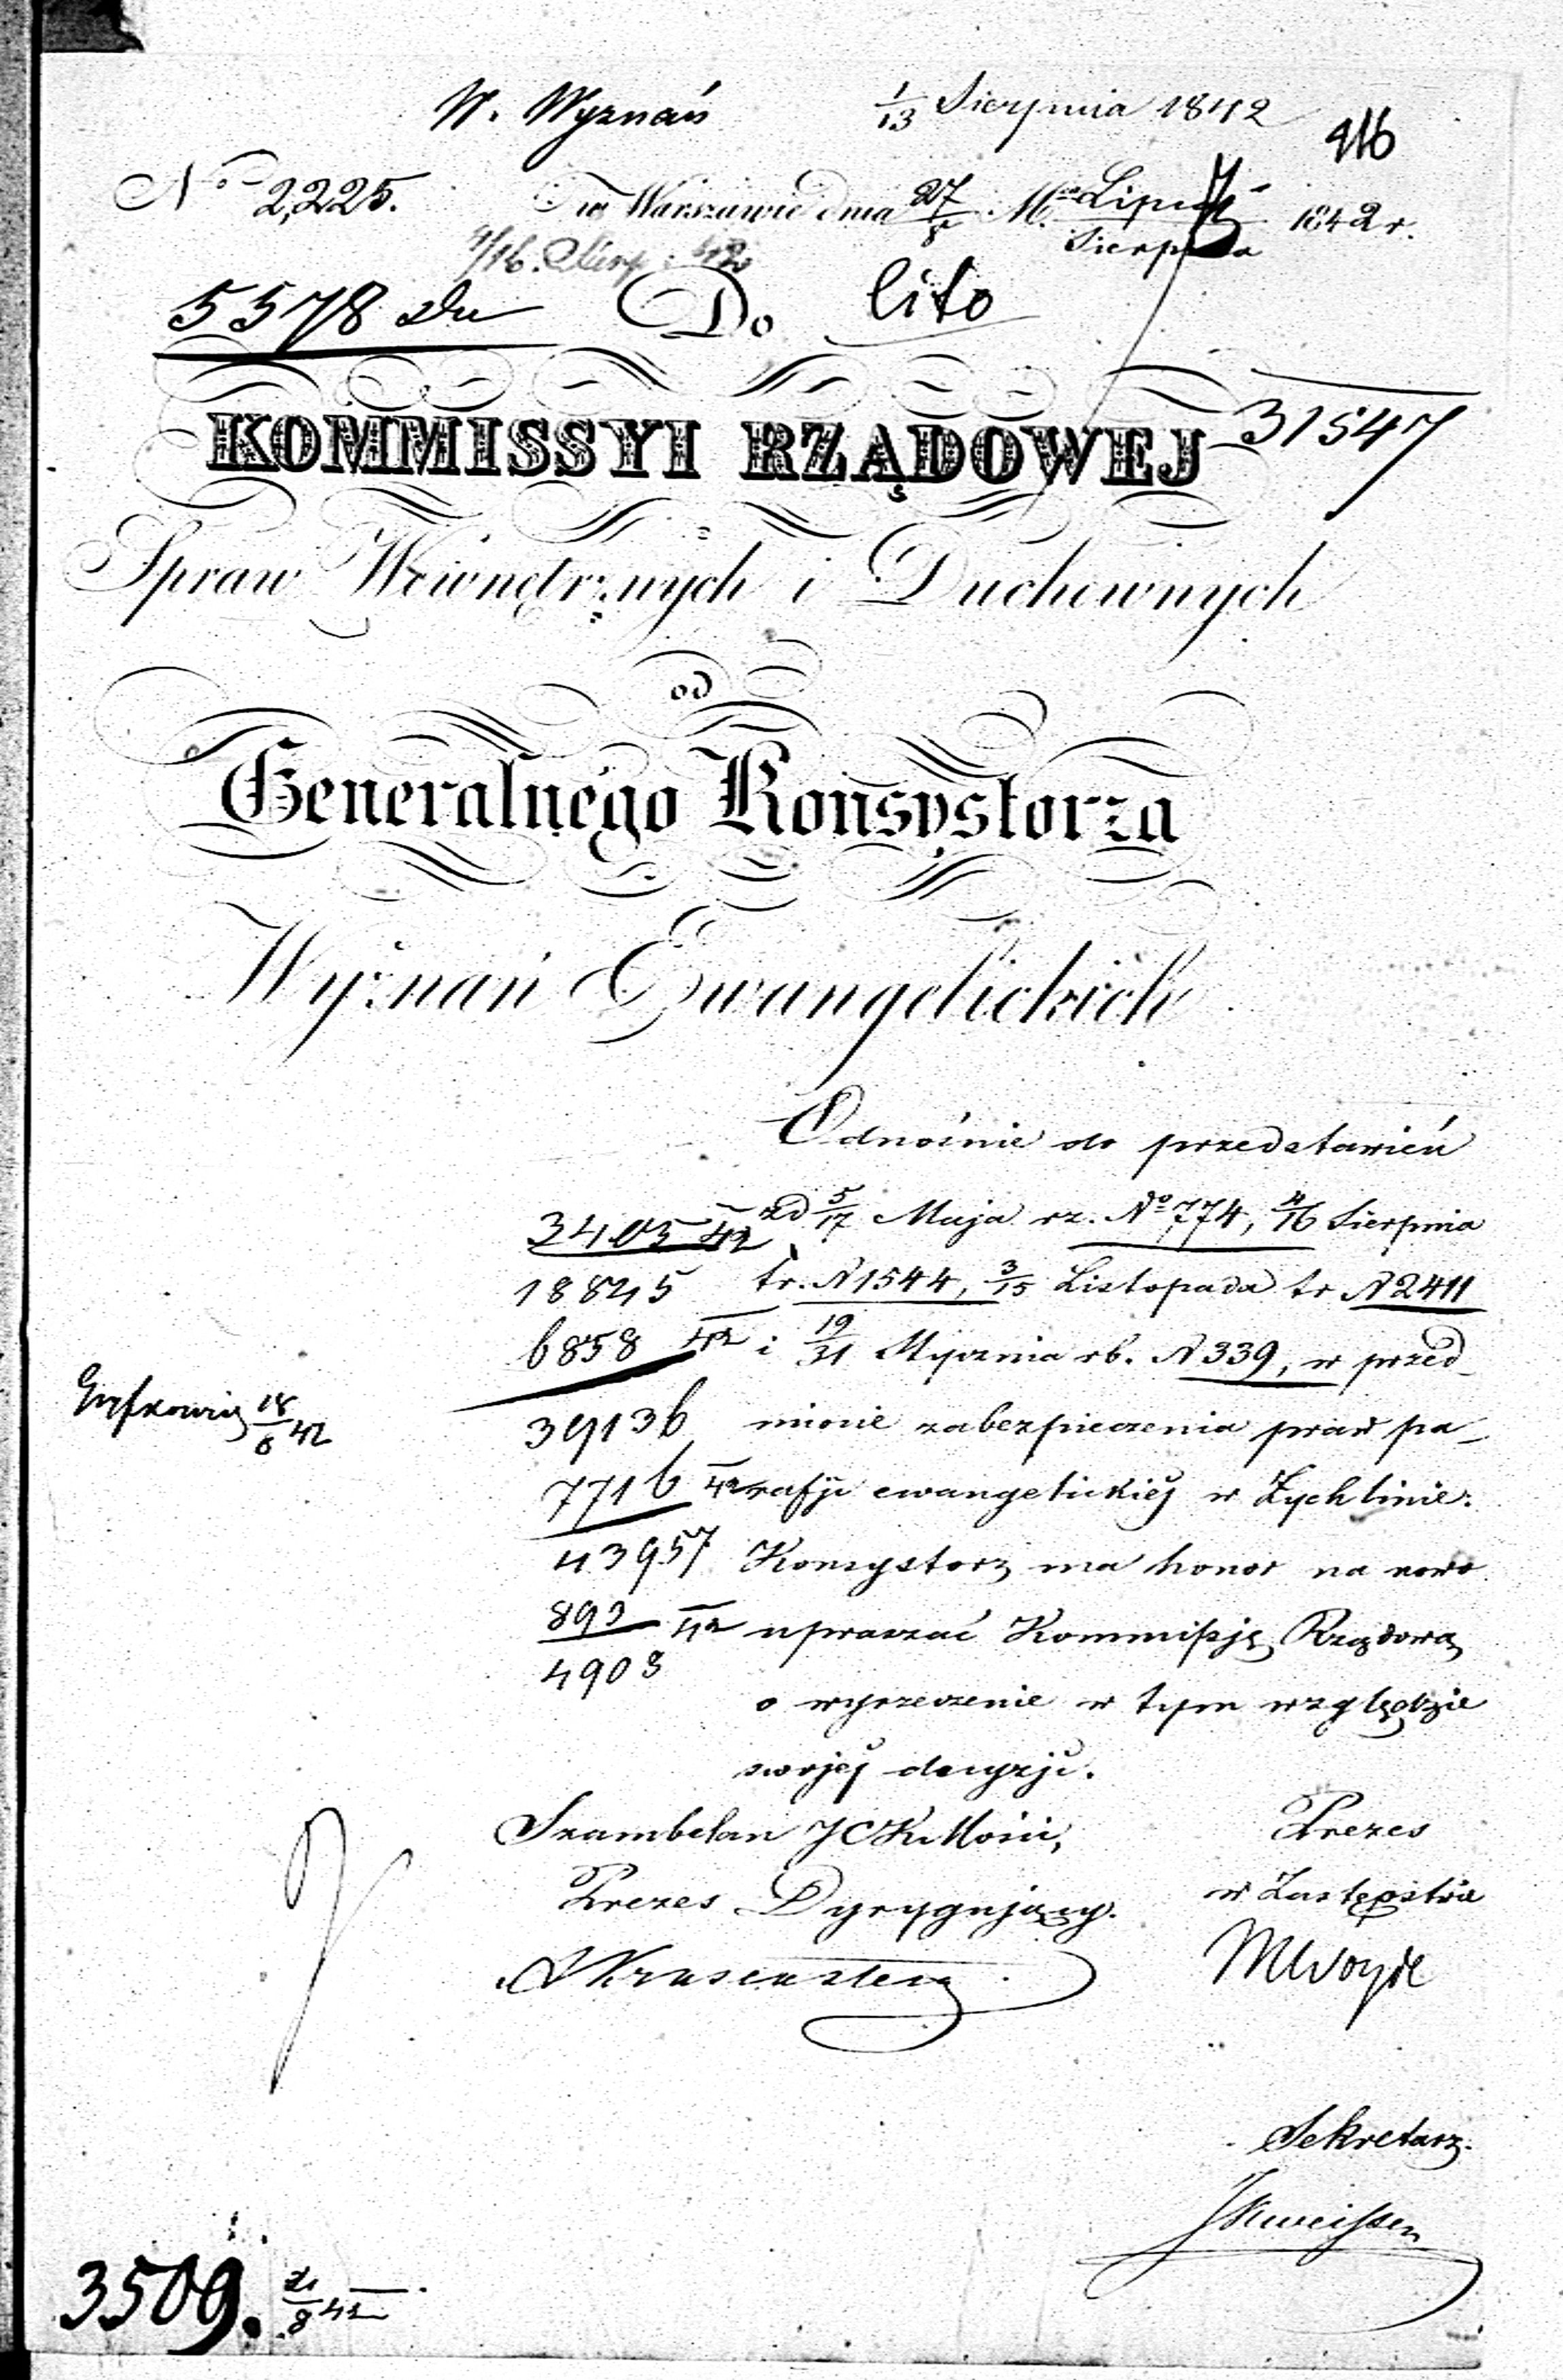 W. Wyznań 1/13 Sierpnia 1842
416
No 2,225. w Warszawie dnia 27/8 M. Lipca/Sierpnia 1842 r.
4/16. Sierp. 42
5578 Do cito
KOMMISSYI RZĄDOWEJ 31547
Spraw Wewnętrznych i Duchownych
od
Generalnego Konsystorza
Wyznań Ewangelickich
Odnośnie do przedstawień
3405 42 od 5/17 Maja rz. No 774, 4/16 Sierpnia
18825 tr. N 1544, 3/15 Listopada tr N 2411
6858 42 i 19/31 Stycznia rb. N 339, w przed-
18/8 42
39136 miocie zabezpieczenia praw pa-
7716 42 rafji ewangelickiéj w Żychlinie:
43957 Konsystorz ma honor na nowo
893 42 upraszać Kommissję Rządową
4903
o wyrzeczenie w tym względzie
swojéj decyzji.
Szambelan JCKMości, Prezes
Prezes Dyrygujący. w Zastępstwie
MWoyde
Sekretarz.
3509. 21/8 42